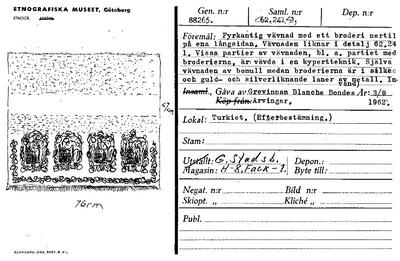 ETNOGRAFISKA MUSEET, Göteborg
Gen. n:r
Saml. n:r
Dep. n:r
88265.
62.24.3.
Föremål: Fyrkantig vävnad med ett broderi nertil
på ena långsidan, Vävnaden liknar i detalj 62,24
1. Vissa partier av vävnaden, bl. a. partiet med
broderierna, är vävda i en kypertteknik. Själva
vävnaden av bomull medan broderierna är i silke
och guld- och silverliknande lanar av metall.
Insaml., Gåva av Grevinnan Blanche Bondes År: 3/9
Köp från: Arvingar. 1962.
Lokal: Turkiet. (Efterbestämning.)
Stam:
Utställt: G. Stadsb. Depon.:
Magasin: H-8, Fack-1. Byte till:
Negat. n:r Bild n:r
Skiopt. „ Kliché „
Publ.
76cm